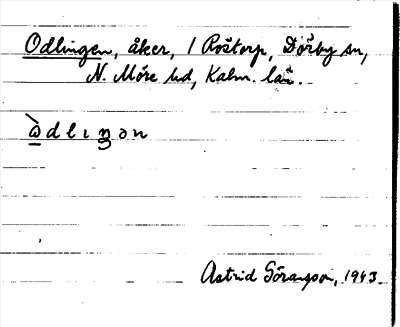 Odlingen, åker, 1 Röstorp, Dörby sn,
N. Möre hd, Kalm. län.
Astrid Göransson, 1943.